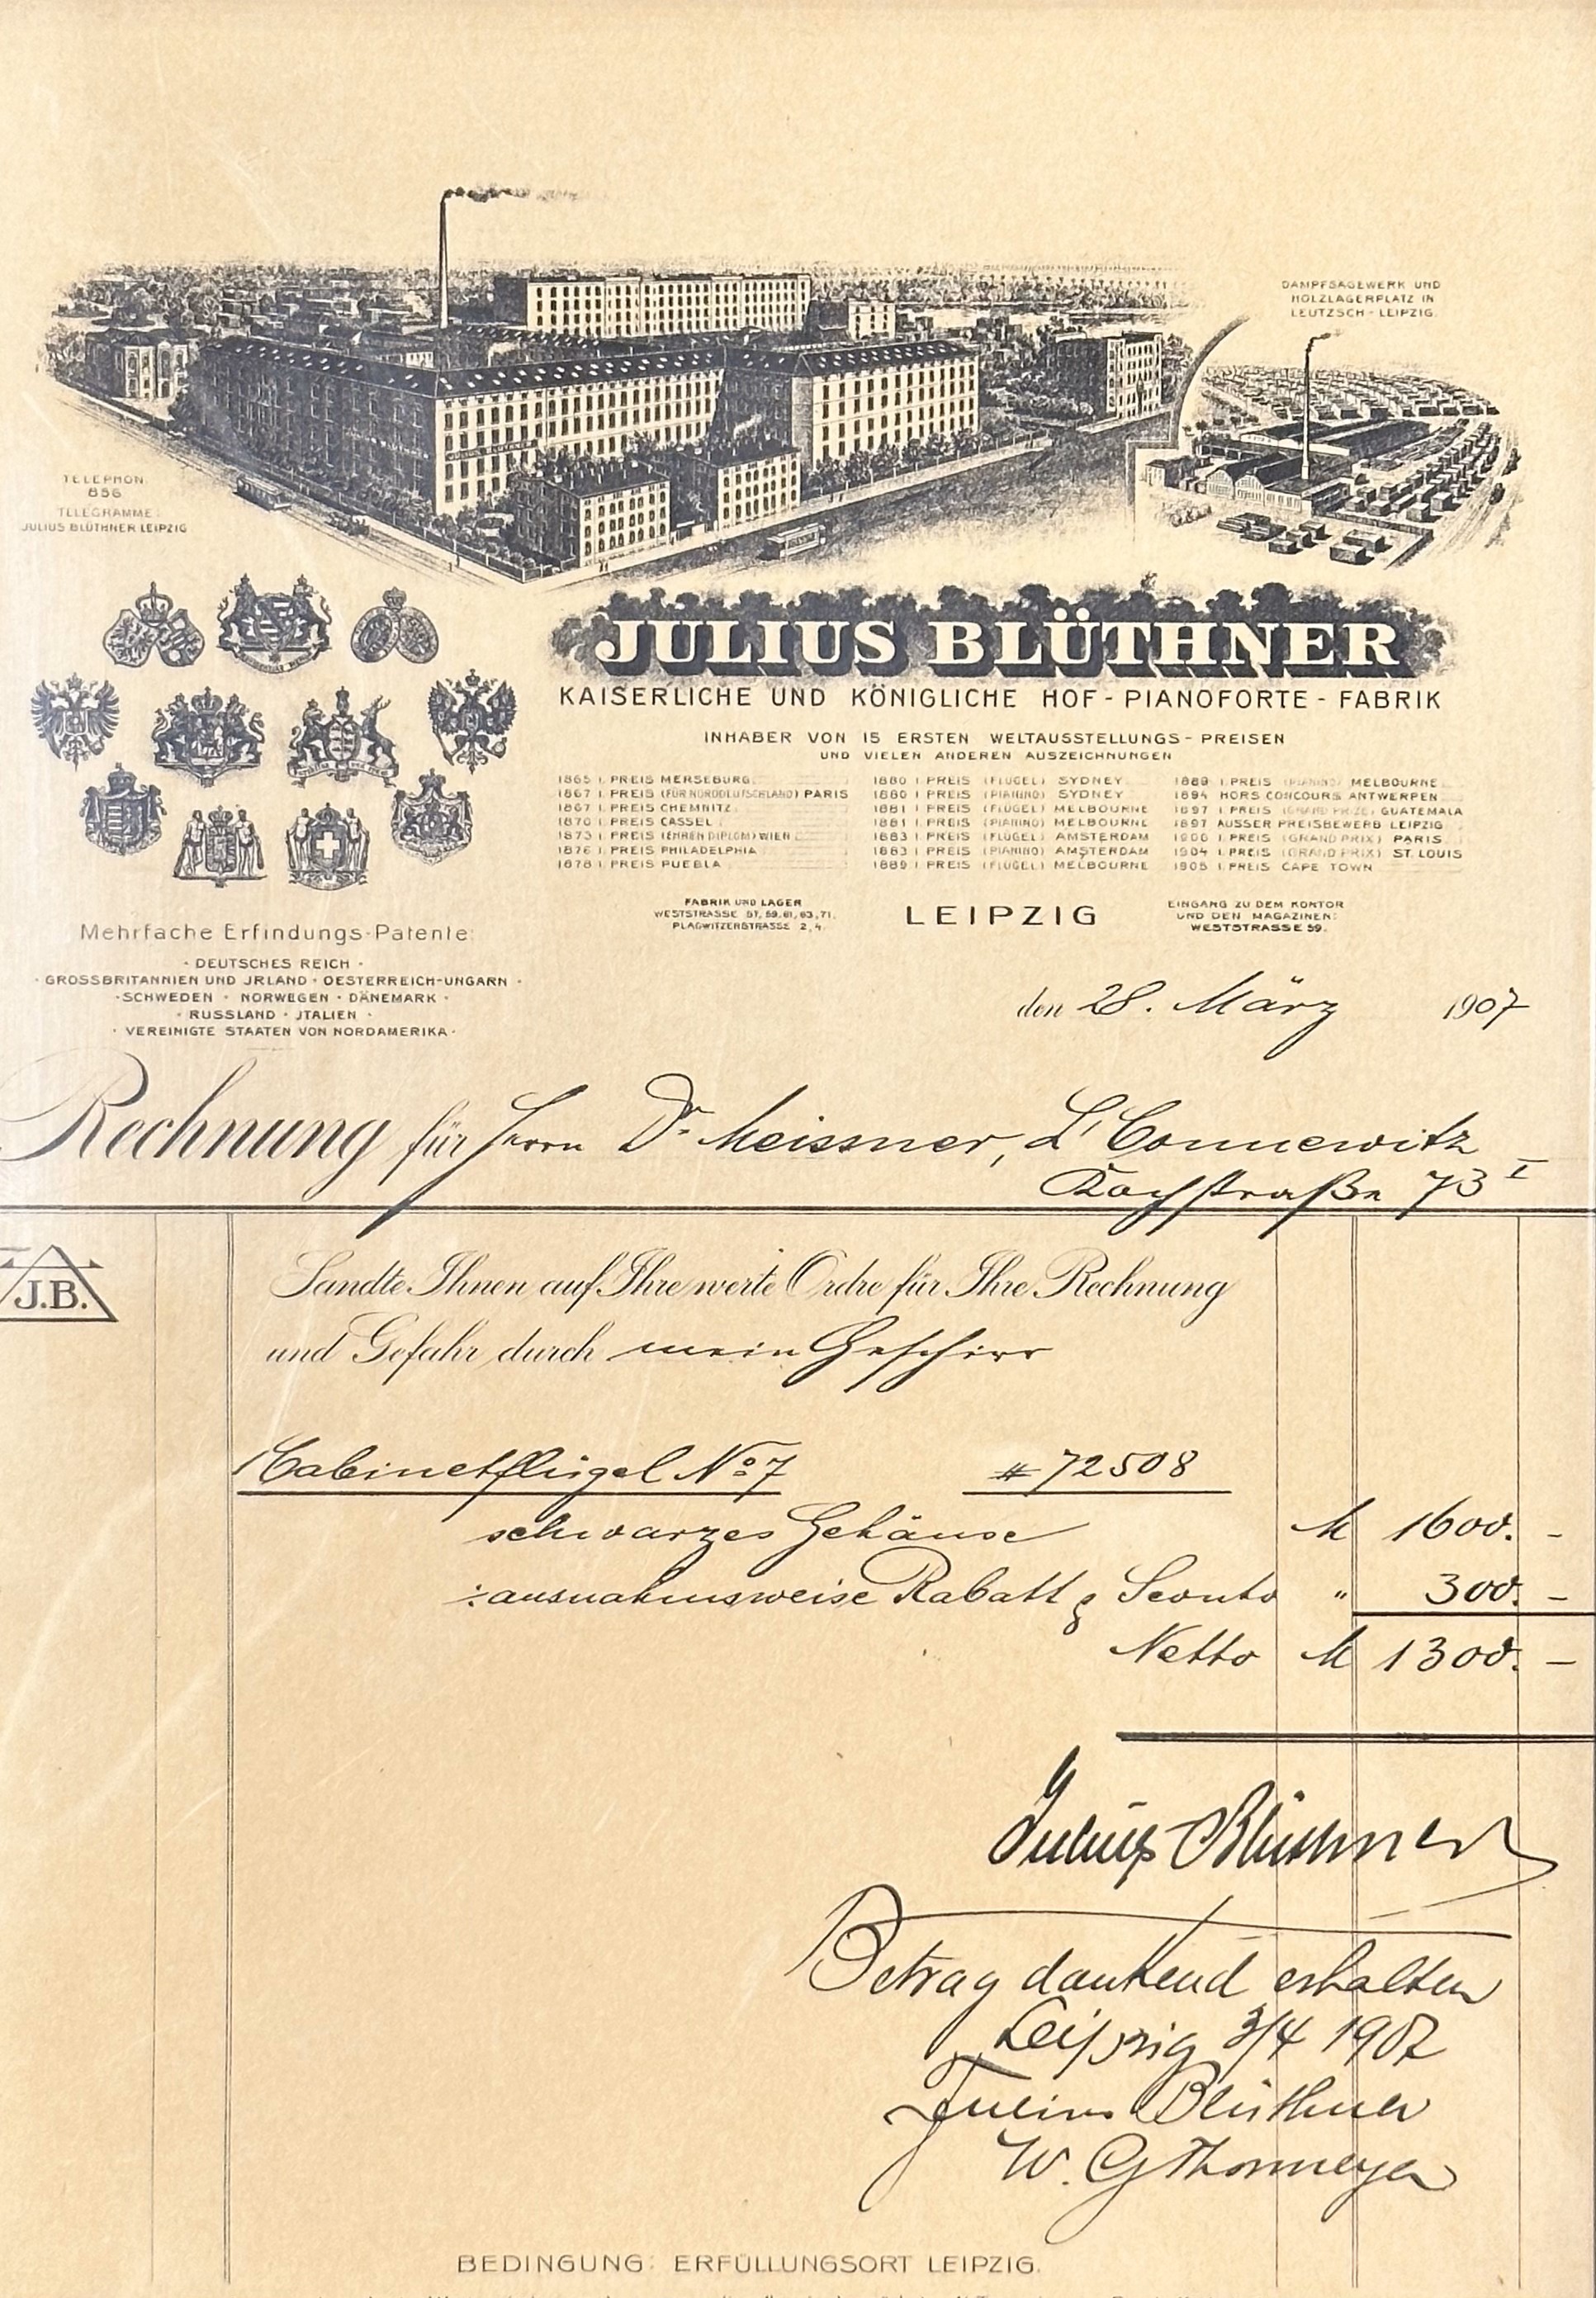 DAMPFSÄGEWERK UND
HOLZLAGERPLATZ IN
LEUTZSCH - LEIPZIG.
TELEPHON
856
TELEGRAMME:
JULIUS BLÜTHNER LEIPZIG
JULIUS BLÜTHNER
JULIUS BLÜTHNER
KAISERLICHE UND KÖNIGLICHE HOF - PIANOFORTE - FABRIK
INHABER VON 15 ERSTEN WELTAUSSTELLUNGS - PREISEN
UND VIELEN ANDEREN AUSZEICHNUNGEN
1865 I. PREIS MERSEBURG
1867 I. PREIS (FÜR NORDDEUTSCHLAND) PARIS
1867 I. PREIS CHEMNITZ
1870 I. PREIS CASSEL
1873 I. PREIS (EHREN DIPLOM) WIEN
1876 I. PREIS PHILADELPHIA
1878 I. PREIS PUEBLA
1880 I. PREIS (FLÜGEL) SYDNEY
1880 I. PREIS (PIANINO) SYDNEY
1881 I. PREIS (FLÜGEL) MELBOURNE
1881 I. PREIS (PIANINO) MELBOURNE
1883 I. PREIS (FLÜGEL) AMSTERDAM
1883 I. PREIS (PIANINO) AMSTERDAM
1889 I. PREIS (FLÜGEL) MELBOURNE
1889 I. PREIS (PIANINO) MELBOURNE
1894 HORS CONCOURS ANTWERPEN
1897 I. PREIS (GRAND PRIZE) GUATEMALA
1897 AUSSER PREISBEWERB LEIPZIG
1900 I. PREIS (GRAND PRIX) PARIS
1904 I. PREIS (GRAND PRIX) ST. LOUIS
1905 I. PREIS CAPE TOWN
FABRIK UND LAGER
WESTSTRASSE 57, 59, 61, 63, 71.
PLAGWITZERSTRASSE 2, 4.
LEIPZIG
EINGANG ZU DEM KONTOR
UND DEN MAGAZINEN:
WESTSTRASSE 59.
Mehrfache Erfindungs-Patente:
· DEUTSCHES REICH ·
· GROSSBRITANNIEN UND JRLAND · OESTERREICH-UNGARN ·
· SCHWEDEN · NORWEGEN · DÄNEMARK ·
· RUSSLAND · JTALIEN ·
· VEREINIGTE STAATEN VON NORDAMERIKA ·
den 28. März 1907
Rechnung für Herrn Dr. Meissner, L' Connewitz
Kochstraße 73 I
J.B.
Sandte Ihnen auf Ihre werte Ordre für Ihre Rechnung
und Gefahr durch mein Geschirr
Cabinetflügel No. 7 # 72508
schwarzes Gehäuse M 1600. -
:ausnahmsweise Rabatt & Sconto " 300. -
Netto M 1300. -
Julius Blüthner
Betrag dankend erhalten
Leipzig 3/4 1907
Julius Blüthner
BEDINGUNG: ERFÜLLUNGSORT LEIPZIG.